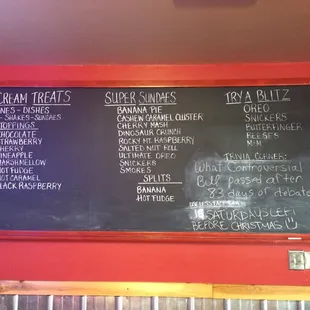 CREAM TREATS
CONES - DISHES
- SHAKES - SUNDAES
TOPPINGS
CHOCOLATE
STRAWBERRY
CHERRY
PINEAPPLE
MARSHMALLOW
HOT FUDGE
HOT CARAMEL
BLACK RASPBERRY
SUPER SUNDAES
BANANA PIE
CASHEW CARAMEL CLUSTER
CHERRY MASH
DINOSAUR CRUNCH
ROCKY MT. RASPBERRY
SALTED NUT ROLL
ULTIMATE OREO
SNICKERS
SMORES
SPLITS
BANANA
HOT FUDGE
TRY A BLITZ
OREO
SNICKERS
BUTTERFINGER
REESE'S
M&M
TRIVIA CORNER:
What Controversial
Bill passed after
83 days of debate
SATURDAYS LEFT
BEFORE CHRISTMAS